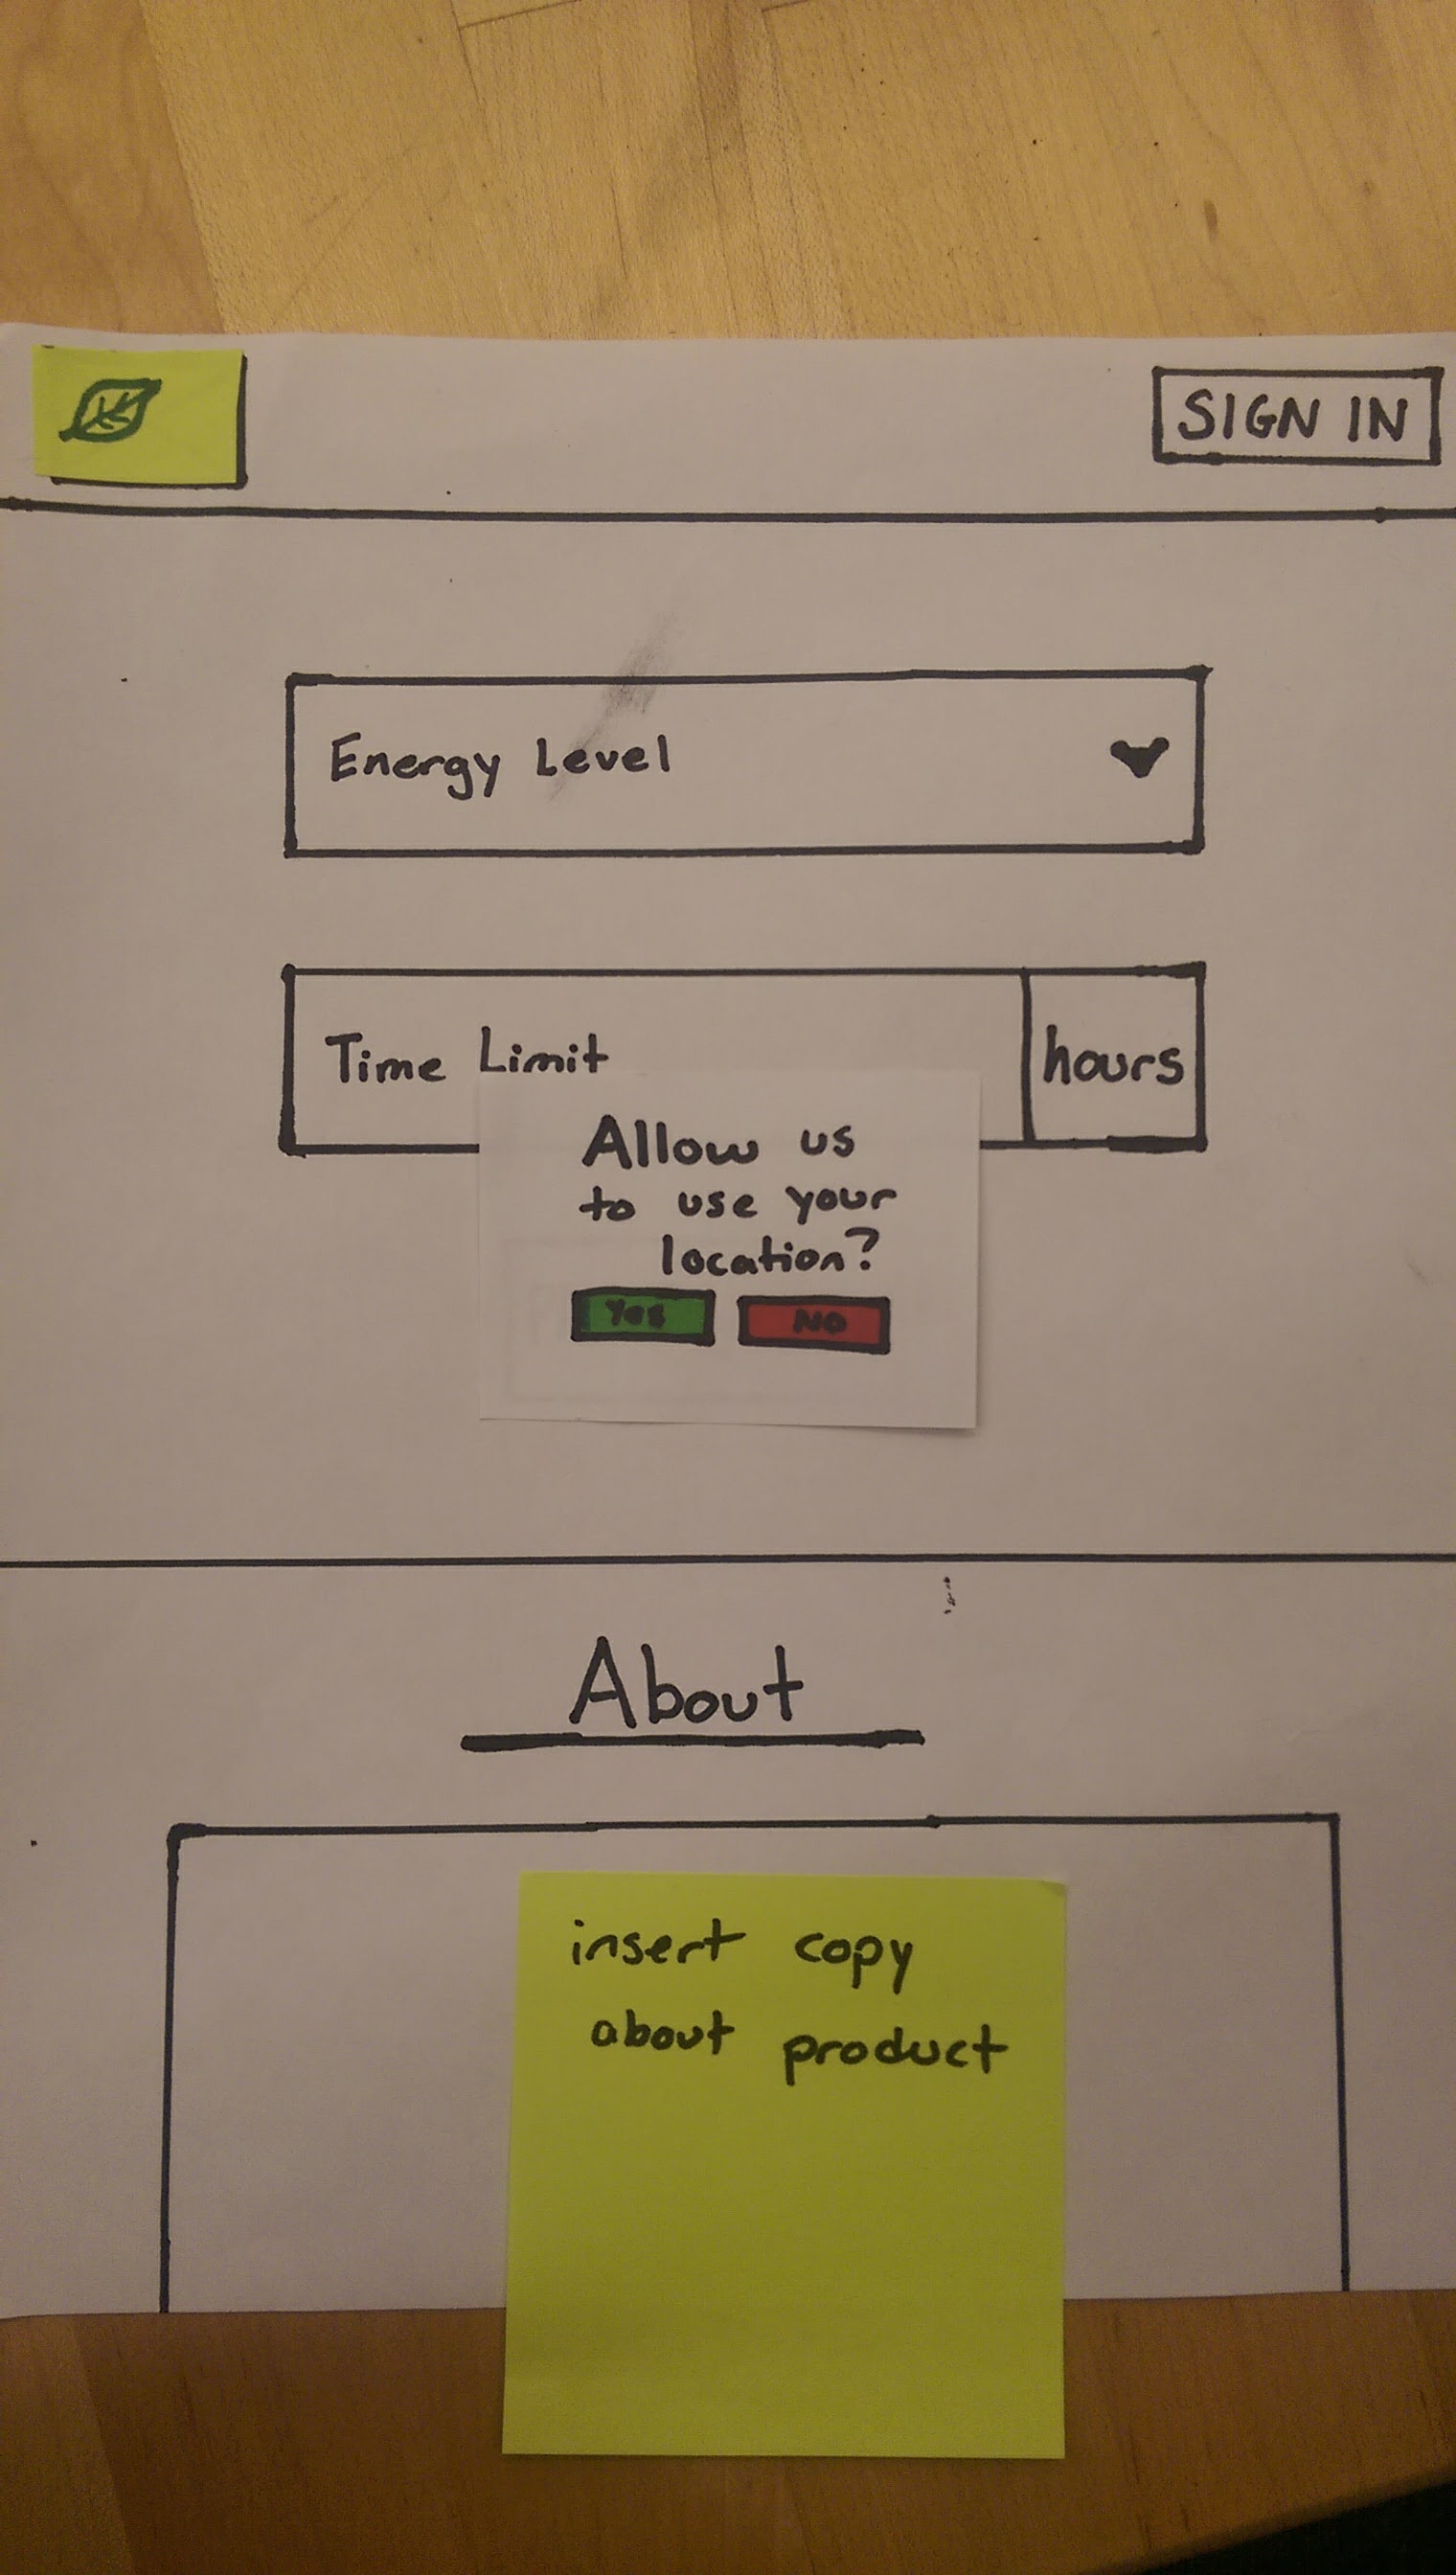 SIGN IN
Energy Level
Time Limit
hours
Allow us
to use your
location?
Yes
NO
About
insert copy
about product